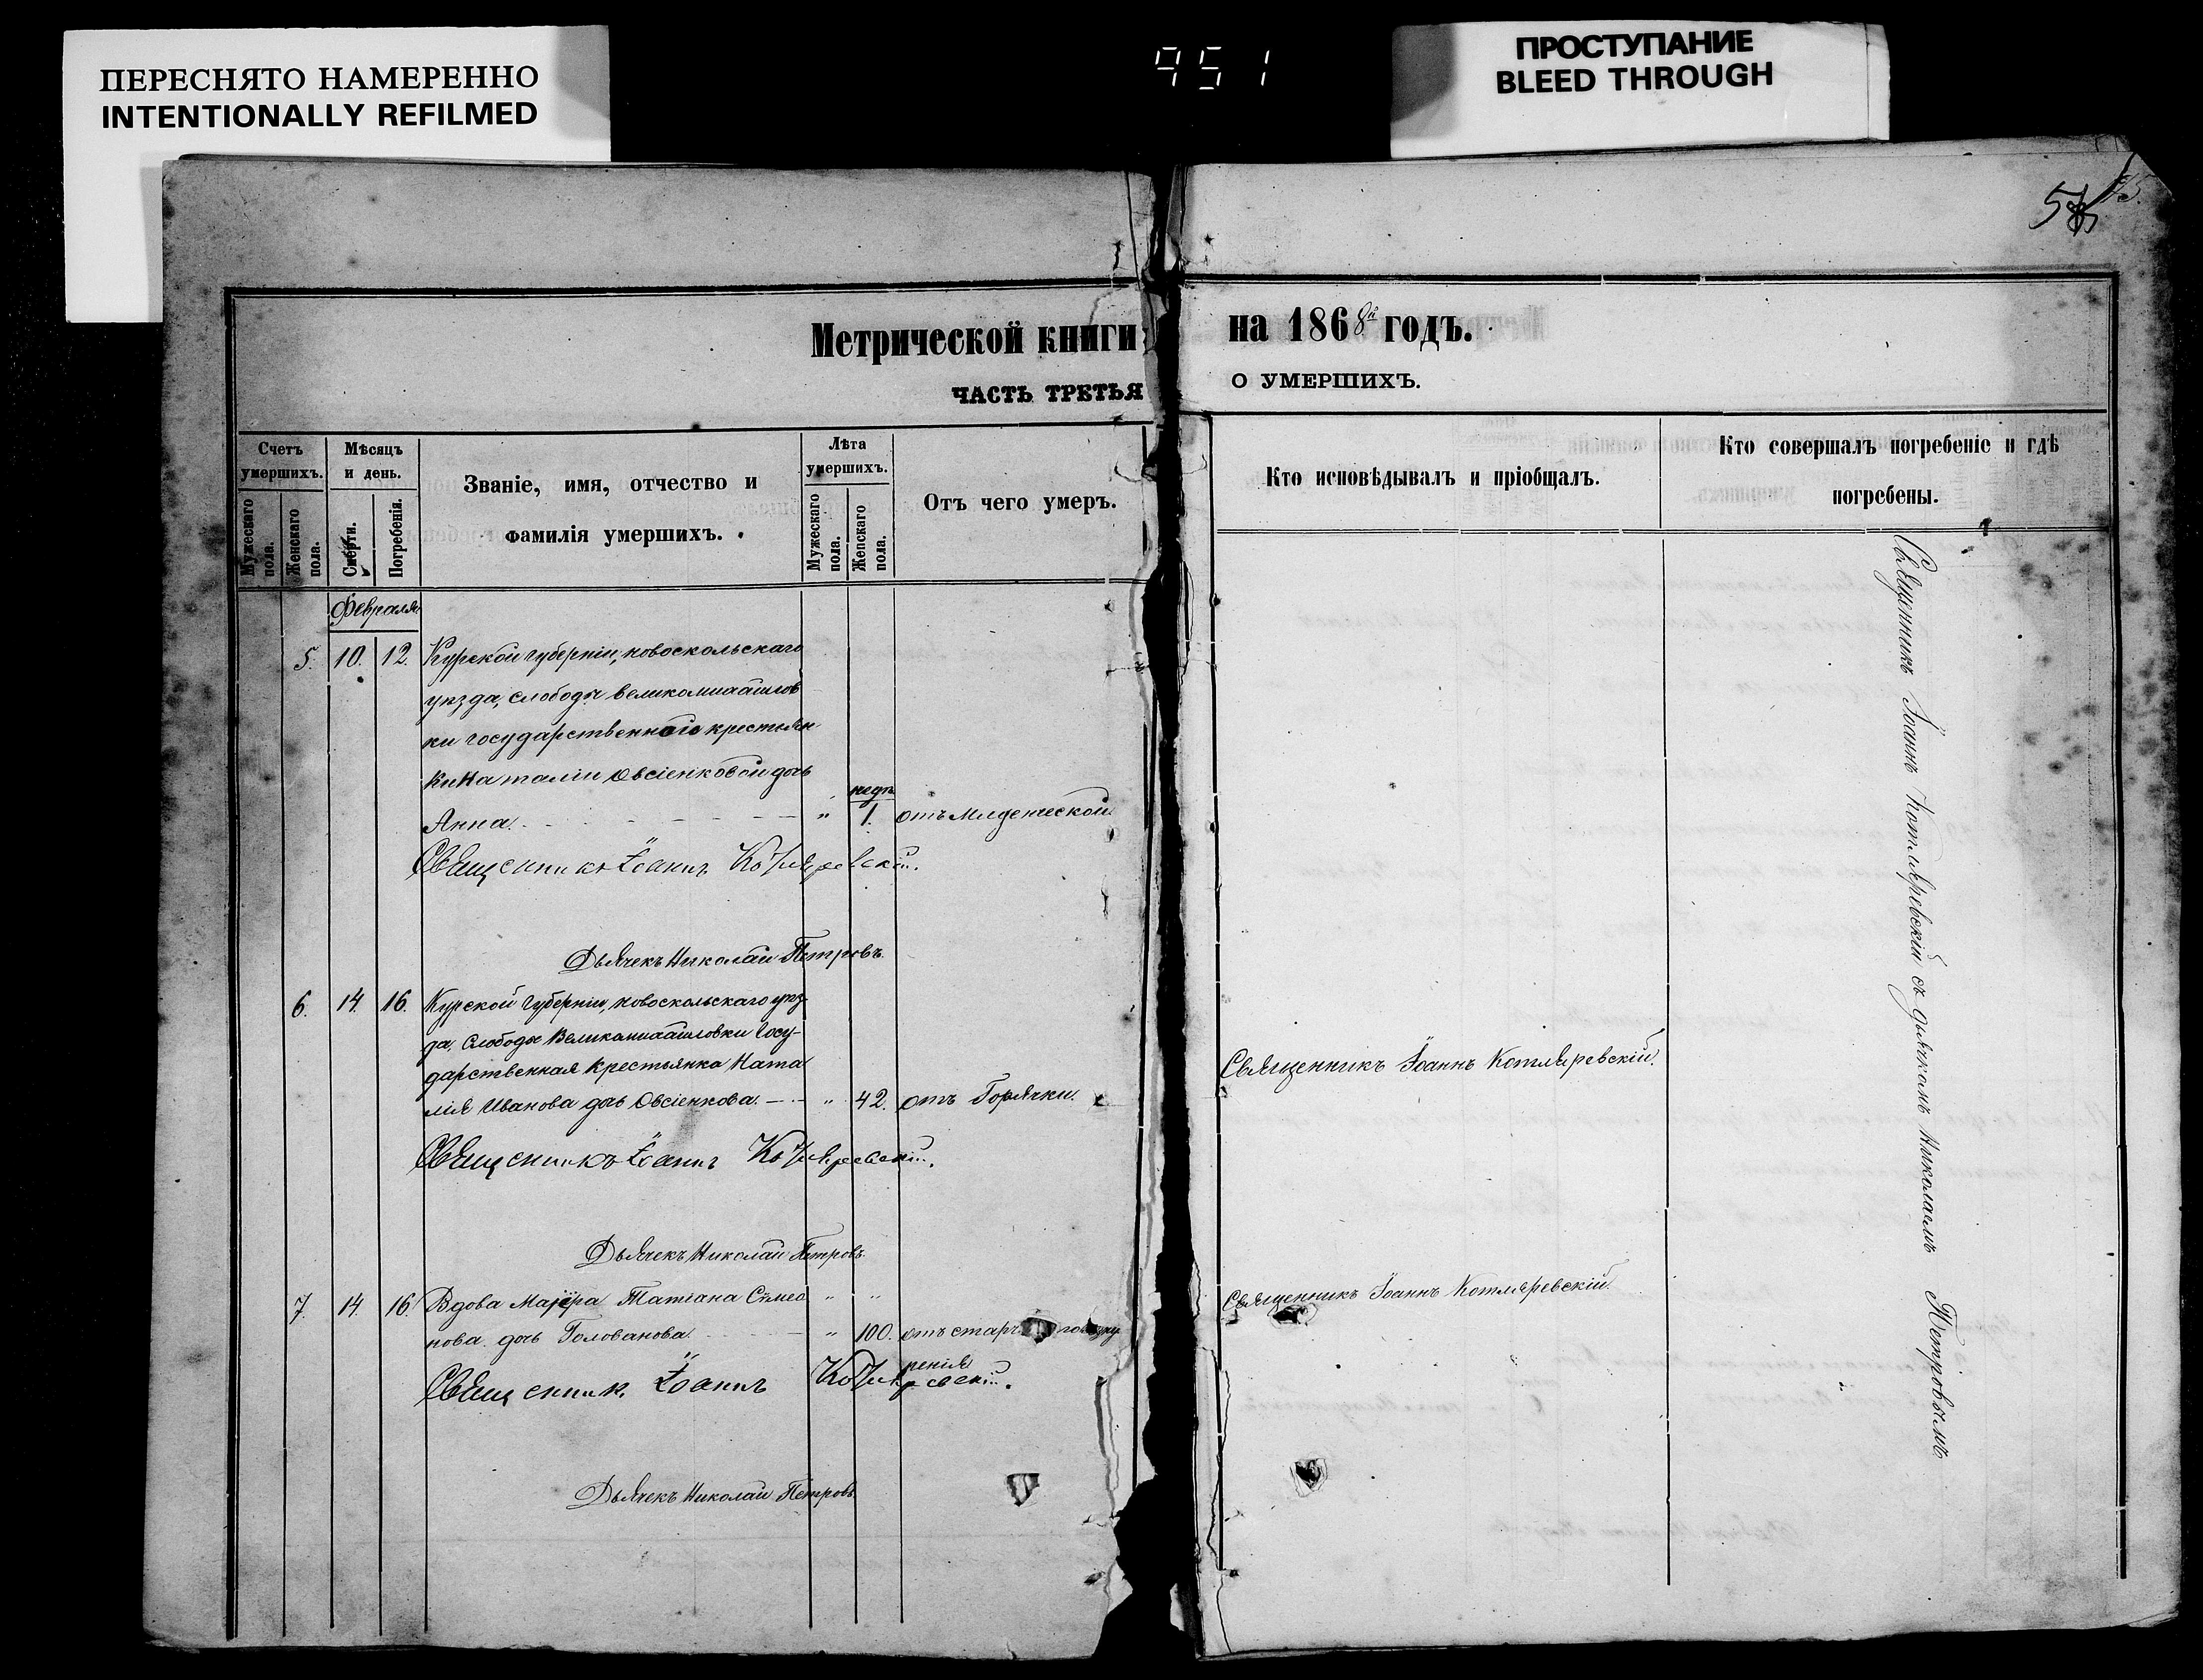 ПЕРЕСНЯТО НАМЕРЕННО
INTENTIONALLY REFILMED
951
ПРОСТУПАНИЕ
BLEED THROUGH
Метрической книги на 1868й годъ.
ЧАСТЬ ТРЕТЬЯ О УМЕРШИХЪ.
Счетъ умершихъ.
Мужескаго пола.
Женскаго пола.
Мѣсяцъ и день.
Смерти.
Погребенія.
Званіе, имя, отчество и
фамилія умершихъ.
Лѣта умершихъ.
Мужескаго пола.
Женскаго пола.
Отъ чего умеръ.
Кто исповѣдывалъ и пріобщалъ.
Кто совершалъ погребеніе и гдѣ
погребены.
Февраля
5. 10. 12. Курской губерніи, новоскольскаго
уѣзда, слободы великомихайлов
ки государственной крестьян
ки Наталіи Овсіенковой дочь
недѣ
Анна. " 1. отъ младенческой
Священникъ Іоаннъ Котляревскій.
Дьячекъ Николай Петровъ.
6. 14. 16. Курской губерніи, новоскольскаго уѣз-
да, Слободы Великомихайловки Госу-
дарственная Крестьянка Ната
лія Иванова дочь Овсіенкова. " 42. отъ Горячки. Священникъ Іоаннъ Котляревскій.
Священникъ Іоаннъ Котляревскій.
Дьячекъ Николай Петровъ.
7. 14. 16 Вдова Маіора Татіана Симео " " Священникъ Іоаннъ Котляревскій.
нова дочь Голованова. " 100. отъ
ренія
Священник. Іоаннъ Котляревскій.
Дьячекъ Николай Петровъ
Священникъ Іоаннъ Котляревскій съ дьячкомъ Николаемъ Петровымъ